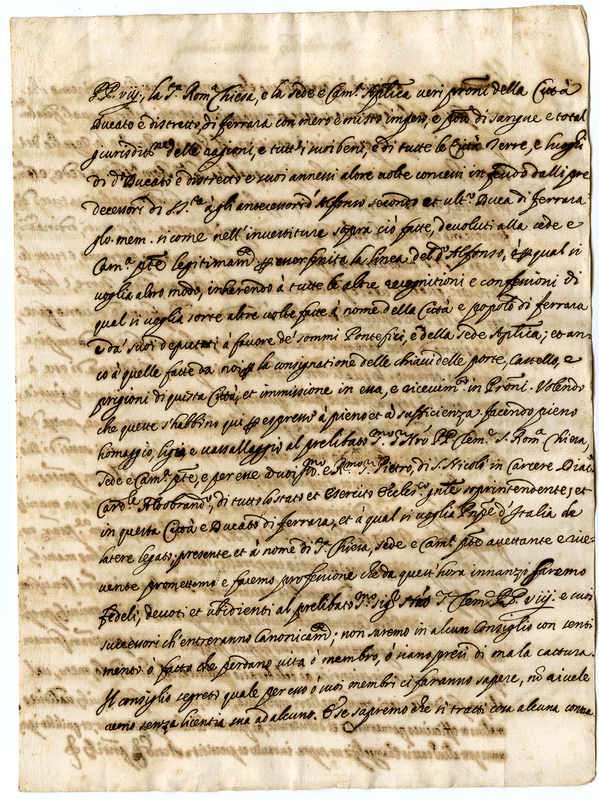 PP. viij., la S.ta Rom.a Chiesa, e la Sede e Cam.a Ap.lica veri proni della Città
Ducato e distretto di Ferrara con mero e misto impero, e potà di sangue e total
giurisditt.ne delle ragioni, e tutt'i suoi beni, e di tutte le Città Terre, e luoghi
di d.o Ducato e distretto e suoi annessi altre volte concessi in feudo dalli pre
decessori di S. S.tà à gli antecessori d'Alfonso secondo et ult.o Duca di ferrara
glo. mem. si come nell'investitura sopra ciò fatte, devoluti alla sede e
Cam.a p.te legitimam.te per esser finita la linea del d.o Alfonso, è per qual si
voglia altro modo, inherendo à tutte le altre recognitioni e confessioni di
qual si voglia sorte altre volte fatte à nome della Città e popolo di ferrara
e da' suoi deputati à favore de' sommi Pontefici, e della sede Ap.lica; et an
co à quelle fatte da noi per la consignatione delle chiavi delle porte, Castello, e
prigioni di questa Città, et immissione in essa, e ricevim.to in Proni. Volendo
che queste s'habbino qui per espresse à pieno et à sufficienza facendo pieno
homaggio, ligio e vassallaggio al prelibato S.mo S. N.ro PP. Clem.e S. Rom.a Chiesa,
Sede e Cam.a p.te, e per esse à voi Ill.mo e R.mo S. Pietro, di S. Nicolò in Carcere Diac.o
Card.le Aldobrand.o, di tutto lo stato et Esercito Eccles.co g.nle soprintendente, et
in questa Città e Ducato di ferrara, et à qual si voglia Prnpe d'Italia de
latere legato; presente et à nome di S.ta Chiesa, sede e Cam.a p.te accettante e rice
vente promettemo e facemo professione che da quest'hora innanzi saremo
fedeli, devoti et ubidienti al prelibato S.mo Sig.r N.ro S. Clem.e PP. viij. e suoi
successori ch'entreranno Canonicam.te; non saremo in alcun Consiglio con senti
mento ò fatto che perdano vita ò membro, ò siano presi di mala cattura.
Il consiglio segreto quale per esso ò suoi membri ci faranno sapere, nò rivele
remo senza licentia sua ad alcuno. E se sapremo che si tratti cosa alcuna contra